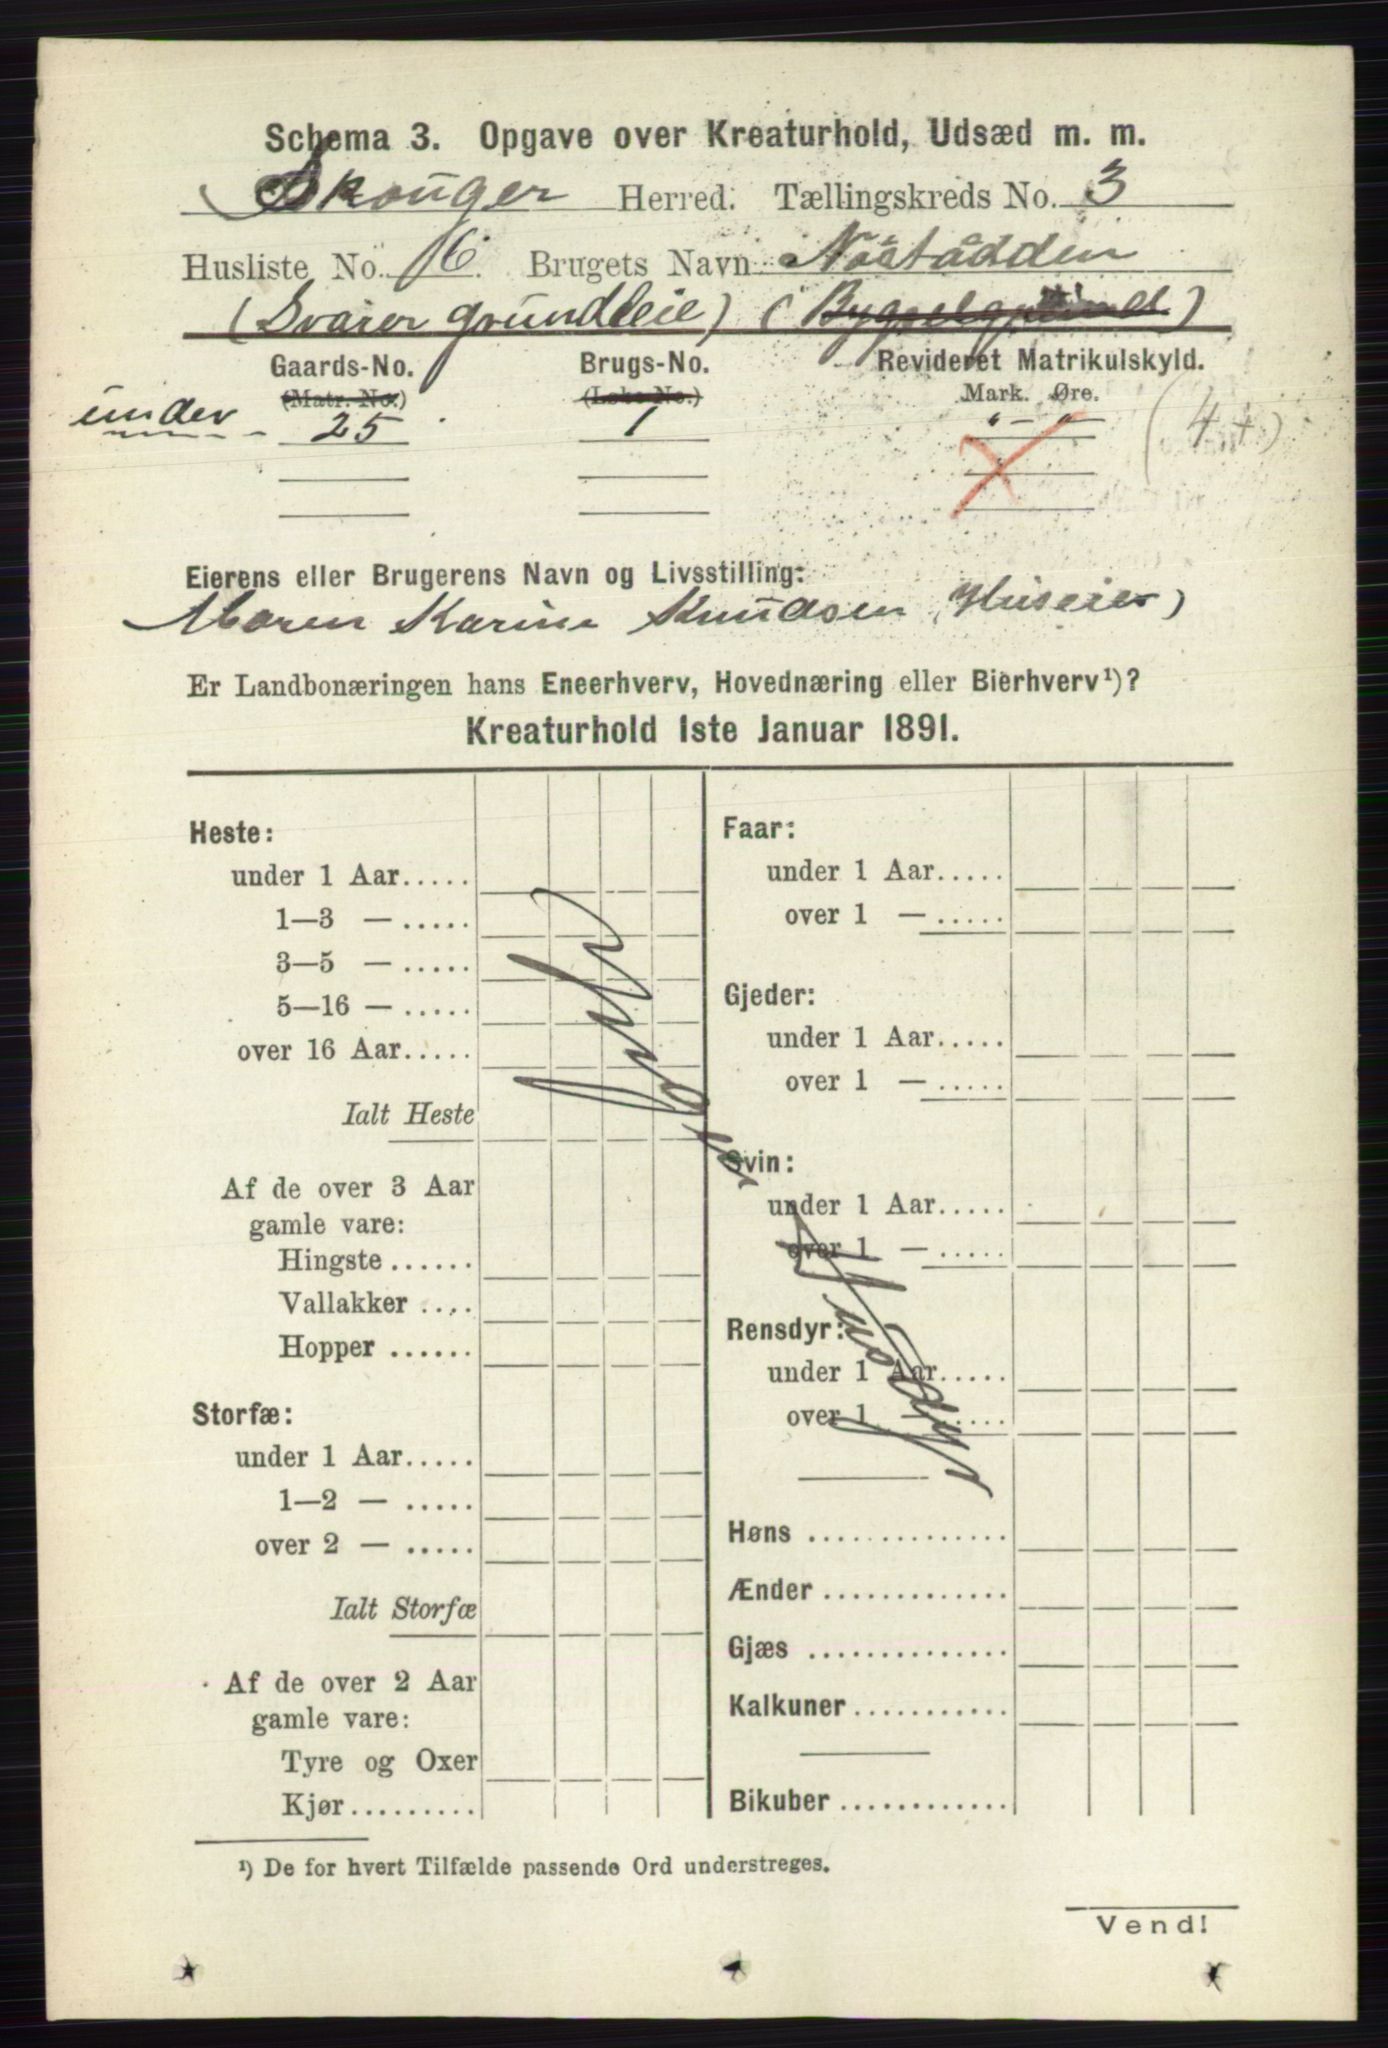 Schema 3. Opgave over Kreaturhold, Udsæd m. m.
Skouger Herred. Tællingskreds No. 3
Husliste No. 6. Brugets Navn Nøstådden
(Svarer grundleie) (Byggselgrund)
Gaards-No. Brugs-No. Revideret Matrikulskyld.
(Matr. No.) (Løbe No.) Mark. Øre.
under 25 1 " - " (4 +)
Eierens eller Brugerens Navn og Livsstilling:
Maren Karine Knudsen (Huseier)
Er Landbonæringen hans Eneerhverv, Hovednæring eller Bierhverv¹)?
Kreaturhold 1ste Januar 1891.
Heste:
under 1 Aar.....
1—3 — .....
3—5 — .....
5—16 — .....
over 16 Aar.....
Ialt Heste
Af de over 3 Aar
gamle vare:
Hingste ......
Vallakker ....
Hopper ......
Storfæ:
under 1 Aar.....
1—2 — .....
over 2 — .....
Ialt Storfæ
Af de over 2 Aar
gamle vare:
Tyre og Oxer
Kjør.........
Faar:
under 1 Aar.....
over 1 — .....
Gjeder:
under 1 Aar.....
over 1 — .....
Svin:
under 1 Aar.....
over 1 — .....
Rensdyr:
under 1 Aar.....
over 1 — .....
Høns ..............
Ænder .............
Gjæs ..............
Kalkuner ...........
Bikuber ............
¹) De for hvert Tilfælde passende Ord understreges.
Vend!